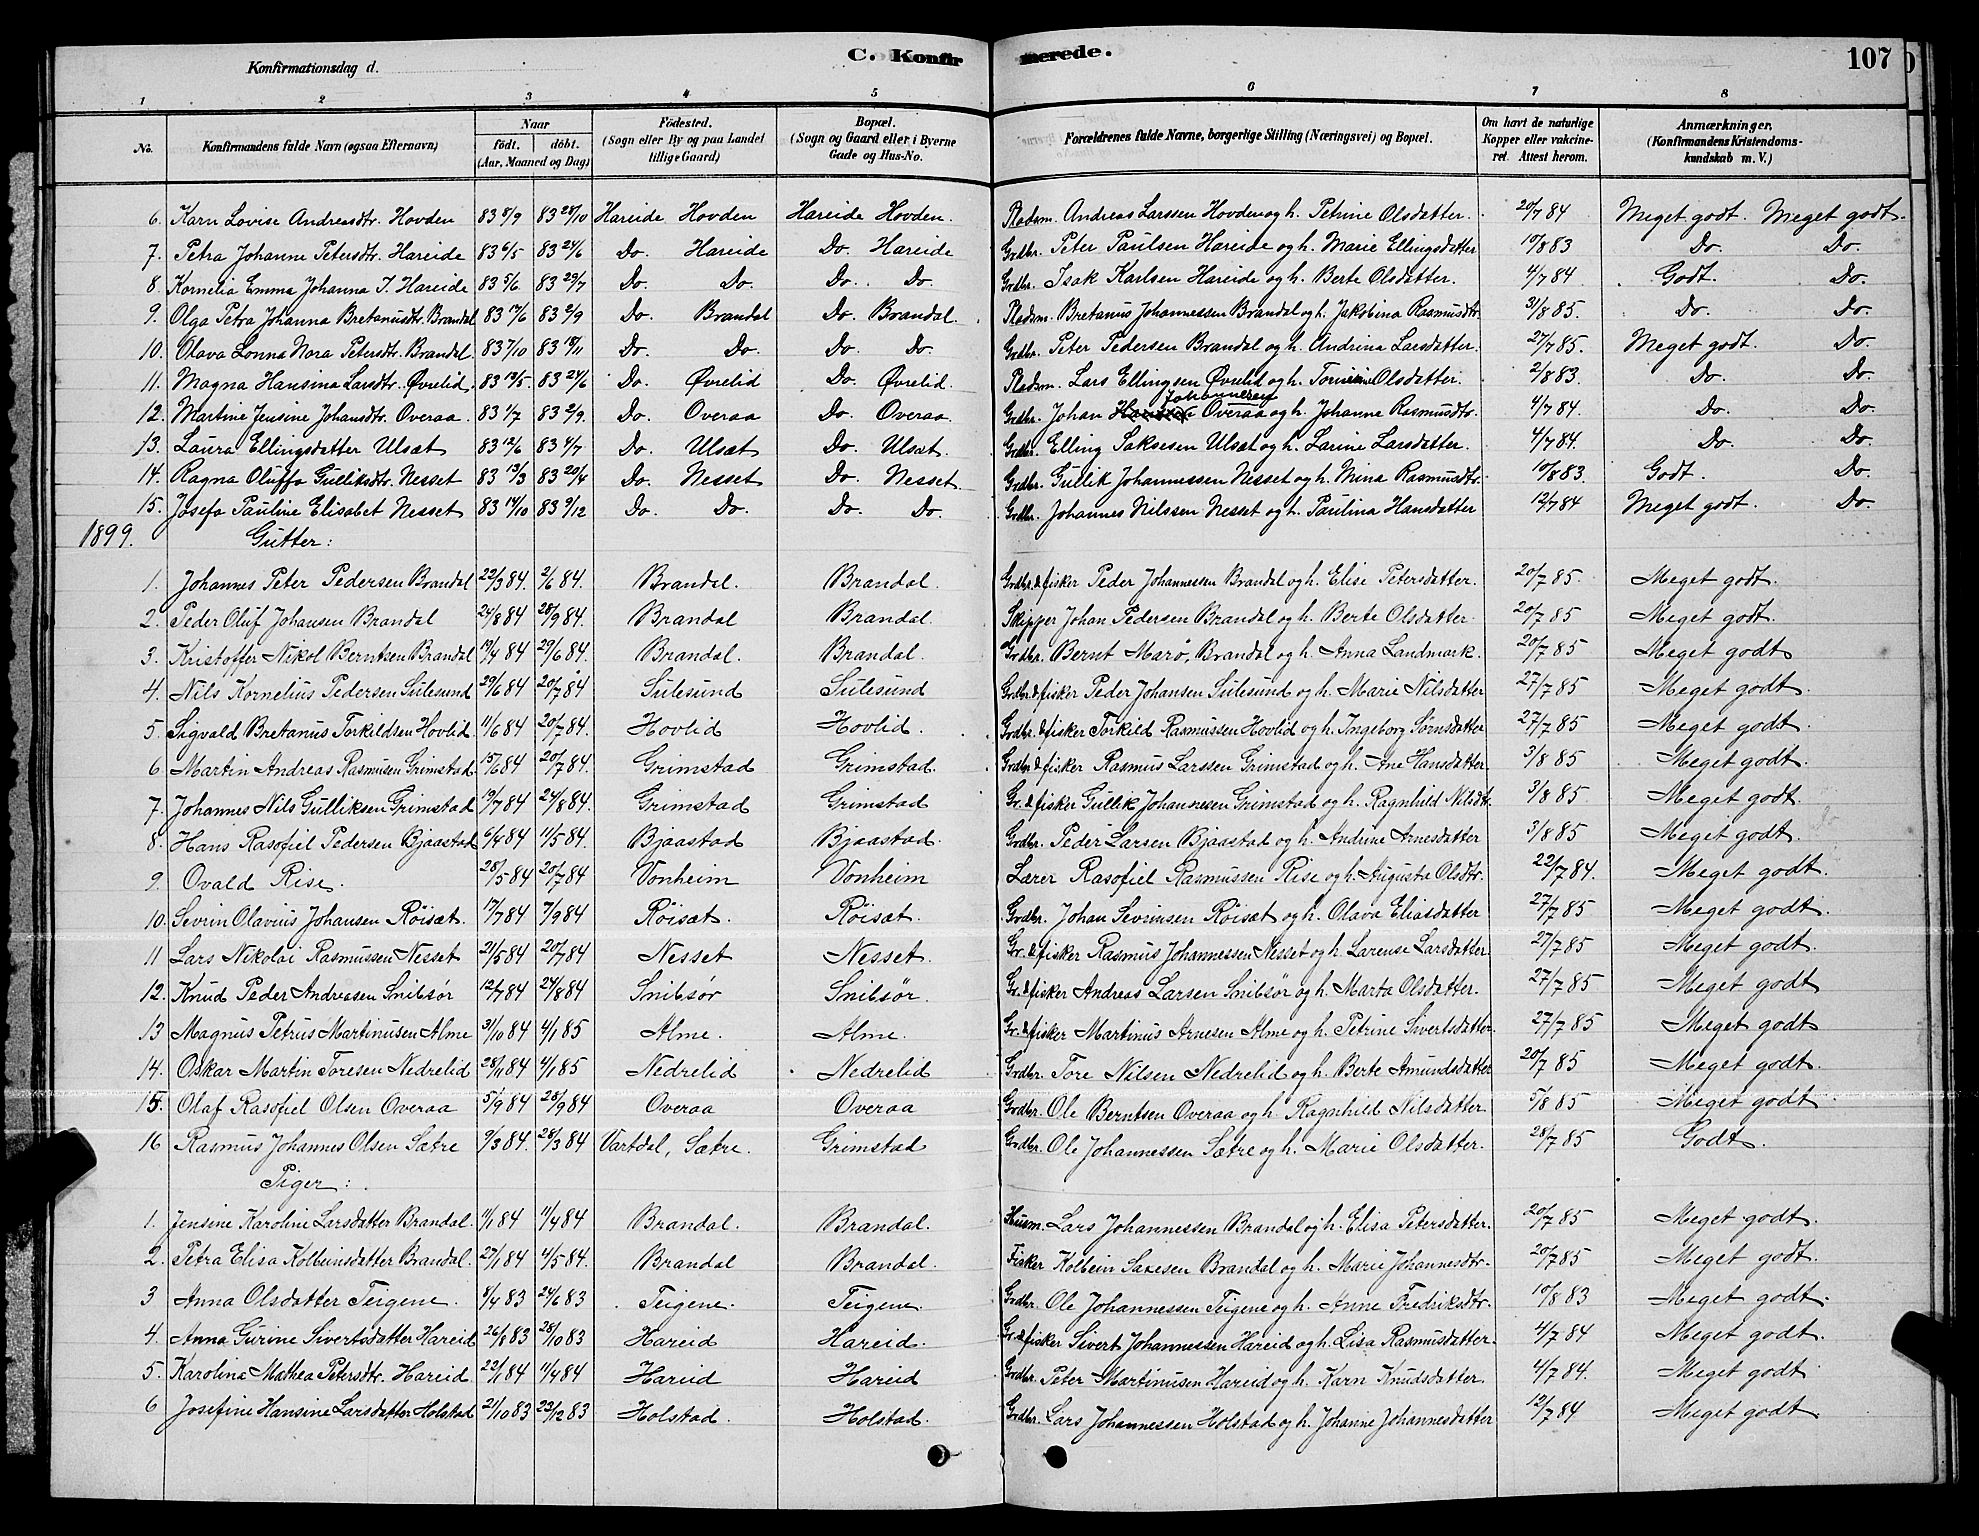 C. Konfirmerede. 107
Konfirmationsdag d.
1 2 3 4 5 6 7 8
No. Konfirmandens fulde Navn (ogsaa Efternavn) Naar født. døbt. (Aar, Maaned og Dag) Fødested. (Sogn eller By og paa Landet tillige Gaard) Bopæl. (Sogn og Gaard eller i Byerne Gade og Hus-No. Forældrenes fulde Navne, borgerlige Stilling (Næringsvei) og Bopæl. Om havt de naturlige Kopper eller vakcineret. Attest herom. Anmærkninger. (Konfirmandens Kristendomskundskab m. V.)
6. Karn Lovise Andreasdtr. Hovden 83 8/9 83 28/10 Hareide Hovden Hareide Hovden. Pladsm. Andreas Larssen Hovden og h. Petrine Olsdatter. 20/7 84 Meget godt. Meget godt.
7. Petra Johanne Petersdtr. Hareide 83 6/5 83 24/6 Do. Hareide Do. Hareide Grdbr. Peter Paulsen Hareide og h. Marie Ellingsdatter 10/8 83 Do. Do.
8. Kornelia Emma Johanna I. Hareide 83 5/6 83 29/7 Do. Do. Do. Do. Grdbr. Isak Karlsen Hareide og h. Berte Olsdatter. 4/7 84 Godt. Do.
9. Olga Petra Johanna Bretanusdtr. Brandal 83 17/6 83 2/9 Do. Brandal Do. Brandal. Pladsm. Bretanus Johannessen Brandal og h. Jakobina Rasmusdtr. 31/8 85. Do. Do.
10. Olava Lonna Nora Petersdtr. Brandal. 83 7/10 83 18/11 Do. Do. Do. Do. Grdbr. Peter Pedersen Brandal og h. Andrina Larsdatter. 27/7 85. Meget godt. Do.
11. Magna Hansina Larsdtr. Øvrelid. 83 13/5. 83 24/6 Do. Øvrelid Do. Øvrelid. Pladsm. Lars Ellingsen Øvrelid og h. Torine Olsdatter. 2/8 83. Do. Do.
12. Martine Jensine Johansdtr. Overaa. 83 1/7 83 2/9. Do. Overaa Do. Overaa. Grdbr. Johan Johannesen Overaa og h. Johanne Rasmusdtr. 4/7 84. Do. Do.
13. Laura Ellingsdatter Ulsæt 83 12/6 83 4/7 Do. Ulsæt Do. Ulsæt. Grdbr. Elling Saksesen Ulsæt og h. Larine Larsdatter. 4/7 84. Do. Do.
14. Ragna Oluffa Gulliksdtr. Nesset 83 13/3 83 20/4 Do. Nesset Do. Nesset. Grdbr. Gullik Johannessen Nesset og h. Mina Rasmusdtr. 10/8 83. Godt. Do.
15. Josefa Pauline Elisabet Nesset 83 14/10 83 9/12 Do. Do. Do. Do. Grdbr. Johannes Nilssen Nesset og h. Paulina Hansdatter 12/7 84 Meget godt. Do.
1899. Gutter:
1. Johannes Peter Pedersen Brandal 22/3 84. 2/6 84. Brandal. Brandal. Grdbr. & fisker Peder Johannessen Brandal og h. Elise Petersdatter. 20/7 85 Meget godt.
2. Peder Oluf Johansen Brandal 24/8 84 28/9 84. Brandal Brandal. Skipper Johan Pedersen Brandal og h. Berte Olsdatter. 20/7 85 Meget godt.
3. Kristoffer Nikol Berntsen Brandal 19/4 84 29/6 84. Brandal. Brandal. Grdbr. Bernt Marø, Brandal og h. Anna Landmark. 20/7 85 Meget godt
4. Nils Kornelius Pedersen Sulesund 29/6 84 20/7 84 Sulesund Sulesund Grdbr. & fisker Peder Johansen Sulesund og h. Marie Nilsdatter 27/7 85 Meget godt.
5. Sigvald Bretanus Torkildsen Hovlid. 11/6 84 20/7 84. Hovlid Hovlid. Grdbr. & fisker Torkild Rasmussen Hovlid og h. Ingeborg Sørnsdatter 27/7 85 Meget godt.
6 Martin Andreas Rasmusen Grimstad. 15/6 84 20/7 84. Grimstad Grimstad. Grdbr. & fisker Rasmus Larssen Grimstad og h. Ane Hansdatter. 3/8 85 Meget godt.
7. Johannes Nils Gulliksen Grimstad 19/7 84 24/8 84. Grimstad Grimstad Gr. & fisker Gullik Johannesen Grimstad og h. Ragnhild Nilsdtr. 3/8 85. Meget godt.
8. Hans Rasofiel Pedersen Bjaastad 6/4 84 11/5 84. Bjaastad Bjaastad. Grdbr. Peder Larsen Bjaastad og h. Andrine Arnesdatter 3/8 85 Meget godt.
9. Ovald Rise. 28/5 84 20/7 84 Vonheim Vonheim Lærer Rasofiel Rasmussen Rise og h. Auguste Olsdtr. 22/7 84. Meget godt.
10. Sevrin Olavius Johansen Røisæt. 17/7 84 7/9 84 Røisæt. Røisæt. Grdbr. Johan Sevrinsen Røisæt og h. Olava Eliasdatter 27/7 85 Meget godt.
11 Lars Nikolai Rasmussen Nesset 21/5 84 20/7 84 Nesset Nesset. Gr. & fisker Rasmus Johannessen Nesset og h. Larense Larsdatter. 27/7 85 Meget godt.
12. Knud Peder Andreasen Snibsør 12/7 84 24/8 84 Snibsør Snibsør. Gr. & fisker Andreas Larsen Snibsør og h. Marta Olsdatter. 27/7 85 Meget godt
13 Magnus Petrus Martinusen Alme 31/10 84 4/1 85 Alme. Alme. Gr. & fisker Martinus Arnesen Alme og h. Petrine Sivertsdatter. 27/7 85 Meget godt
14. Oskar Martin Toresen Nedrelid 28/11 84 4/1 85 Nedrelid Nedrelid Grdbr. Tore Nilsen Nedrelid og h. Berte Amundsdatter 20/7 85 Meget godt.
15. Olaf Rasofiel Olsen Overaa 5/9 84 28/9 84 Overaa Overaa Grdbr. Ole Berntsen Overaa og h. Ragnhild Nilsdatter 5/8 85 Meget godt
16 Rasmus Johannes Olsen Sætre 9/3 84. 28/3 84 Vartdal, Sætre. Grimstad Grdbr. Ole Johannessen Sætre og h. Marie Olsdatter. 28/7 85 Godt.
Piger:
1. Jensine Karoline Larsdatter Brandal. 11/1 84 11/4 84 Brandal. Brandal. Husm. Lars Johannessen Brandal og h. Elisa Petersdatter. 20/7 85 Meget godt.
2. Petra Elisa Kolbeinsdatter Brandal. 27/1 84 4/5 84. Brandal Brandal. Fisker Kolbein Saxesen Brandal og h. Marie Johannesdtr. 20/7 85 Meget godt.
3 Anna Olsdatter Teigene. 8/4 83 24/6 83 Teigene. Teigene. Grdbr. Ole Johannessen Teigene og h. Anne Fredriksdtr. 10/8 83 Meget godt.
4. Anna Gurine Sivertsdatter Hareid 26/8 83 28/10 83 Hareid Hareid. Gr. & fisker Sivert Johannessen Hareid og h. Lisa Rasmusdatter. 4/7 84 Meget godt.
5. Karolina Mathea Petersdtr. Hareid 22/1 84 11/4 84 Hareid Hareid Grdbr. Peter Martinusen Hareid og h. Karn Knudsdatter. 4/7 84. Meget godt
6 Josefine Hansine Larsdatter Holstad 21/10 83 23/12 83 Holstad. Holstad. Grdbr. Lars Johannessen Holstad og h. Johanne Johannesdatter 12/7 84 Meget godt.